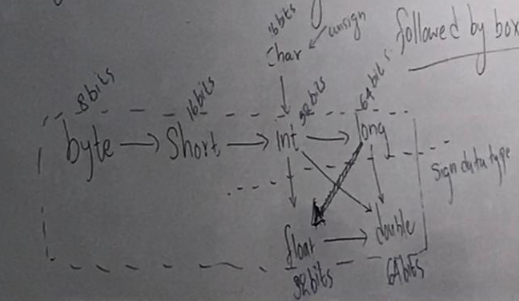 16bits
unsign
Char
followed by box
8bits
16bits
32bits
64bits
byte → Short → Int → long
sign data type
float → double
32bits
64bits